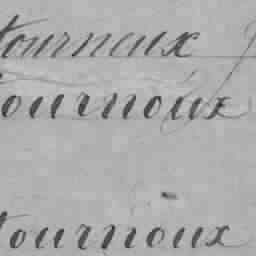 tourneux
tournoux
tournoux